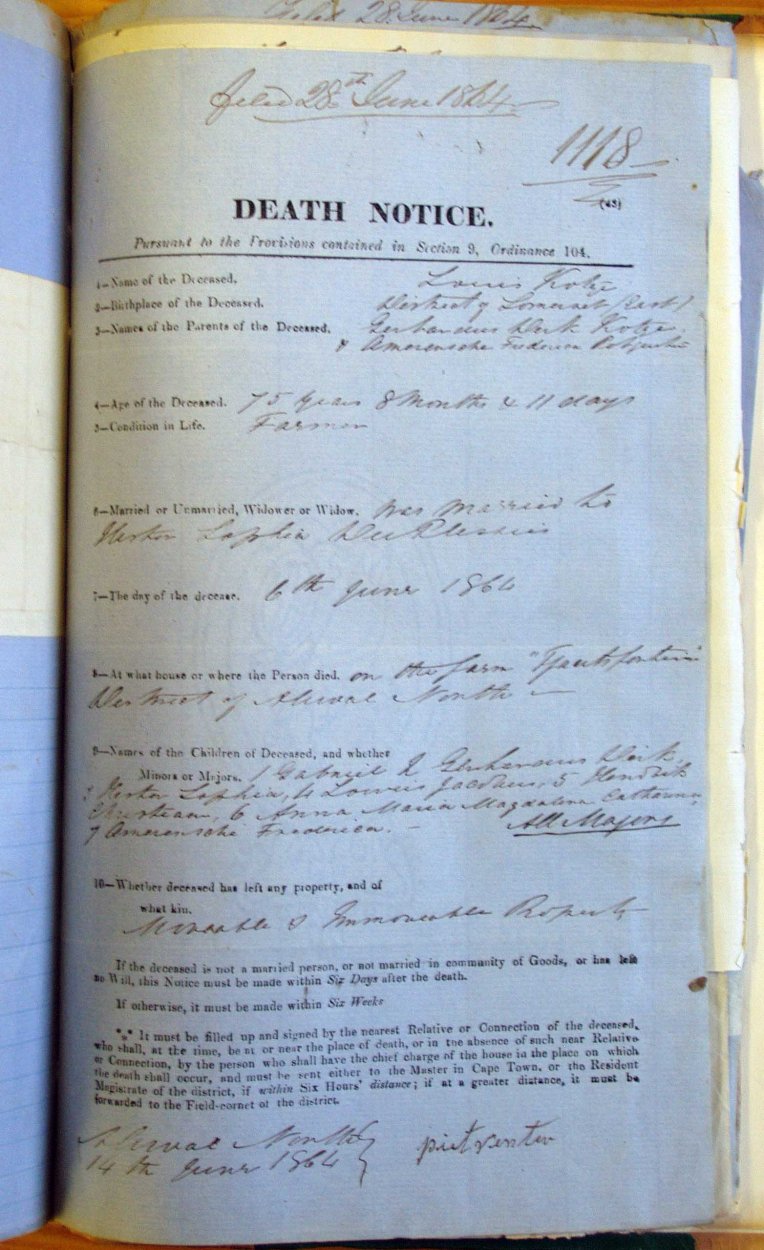 Filed 28 June 1864
filed 28th June 1864
1118
(43)
DEATH NOTICE.
Pursuant to the Provisions contained in Section 9, Ordinance 104.
1—Name of the Deceased. Louis Kotze
2—Birthplace of the Deceased. District of Somerset (East)
3—Names of the Parents of the Deceased. Gerhardus Dirk Kotze
& Amerensche Frederica
4—Age of the Deceased. 75 Years 8 Months & 11 days
5—Condition in Life. Farmer
6—Married or Unmarried, Widower or Widow. was married to
Hester Sophia Du Plessis
7—The day of the decease. 6th June 1864
8—At what house or where the Person died. on the farm
District of Aliwal North —
9—Names of the Children of Deceased, and whether
Minors or Majors. 1 Gabriel 2 Gerhardus Dirk,
3 Hester Sophia, 4 Louis Jacobus, 5 Hendrik
Christiaan, 6 Anna Maria Magdalena Catharina,
7 Amerensche Frederica. — All Majors
10—Whether deceased has left any property, and of
what kin.
Moveable & Immoveable Property
If the deceased is not a married person, or not married in community of Goods, or has left
no Will, this Notice must be made within Six Days after the death.
If otherwise, it must be made within Six Weeks
*** It must be filled up and signed by the nearest Relative or Connection of the deceased,
who shall, at the time, be at or near the place of death, or in the absence of such near Relative
or Connection, by the person who shall have the chief charge of the house in the place on which
the death shall occur, and must be sent either to the Master in Cape Town, or the Resident
Magistrate of the district, if within Six Hours' distance; if at a greater distance, it must be
forwarded to the Field-cornet of the district.
Aliwal North
14th June 1864
piet venter